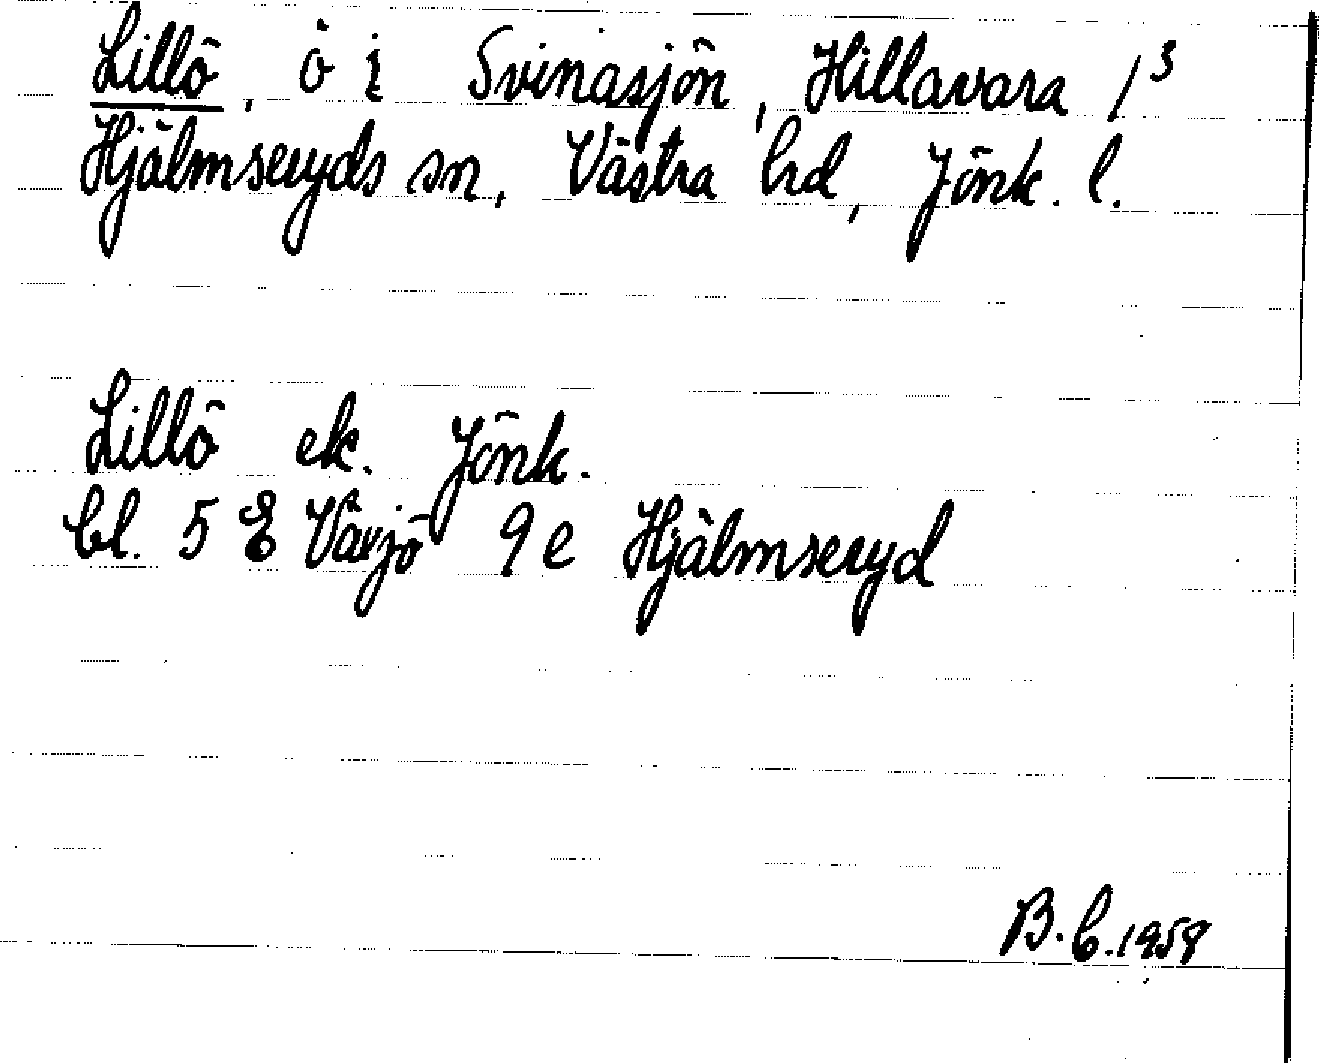 Lillö, ö i Svinasjön, Hillavara 1³
Hjälmseryds sn, Västra hd, Jönk. l.
Lillö ek. Jönk.
bl. 5 E Växjö 9 e Hjälmseryd
B.C. 1959